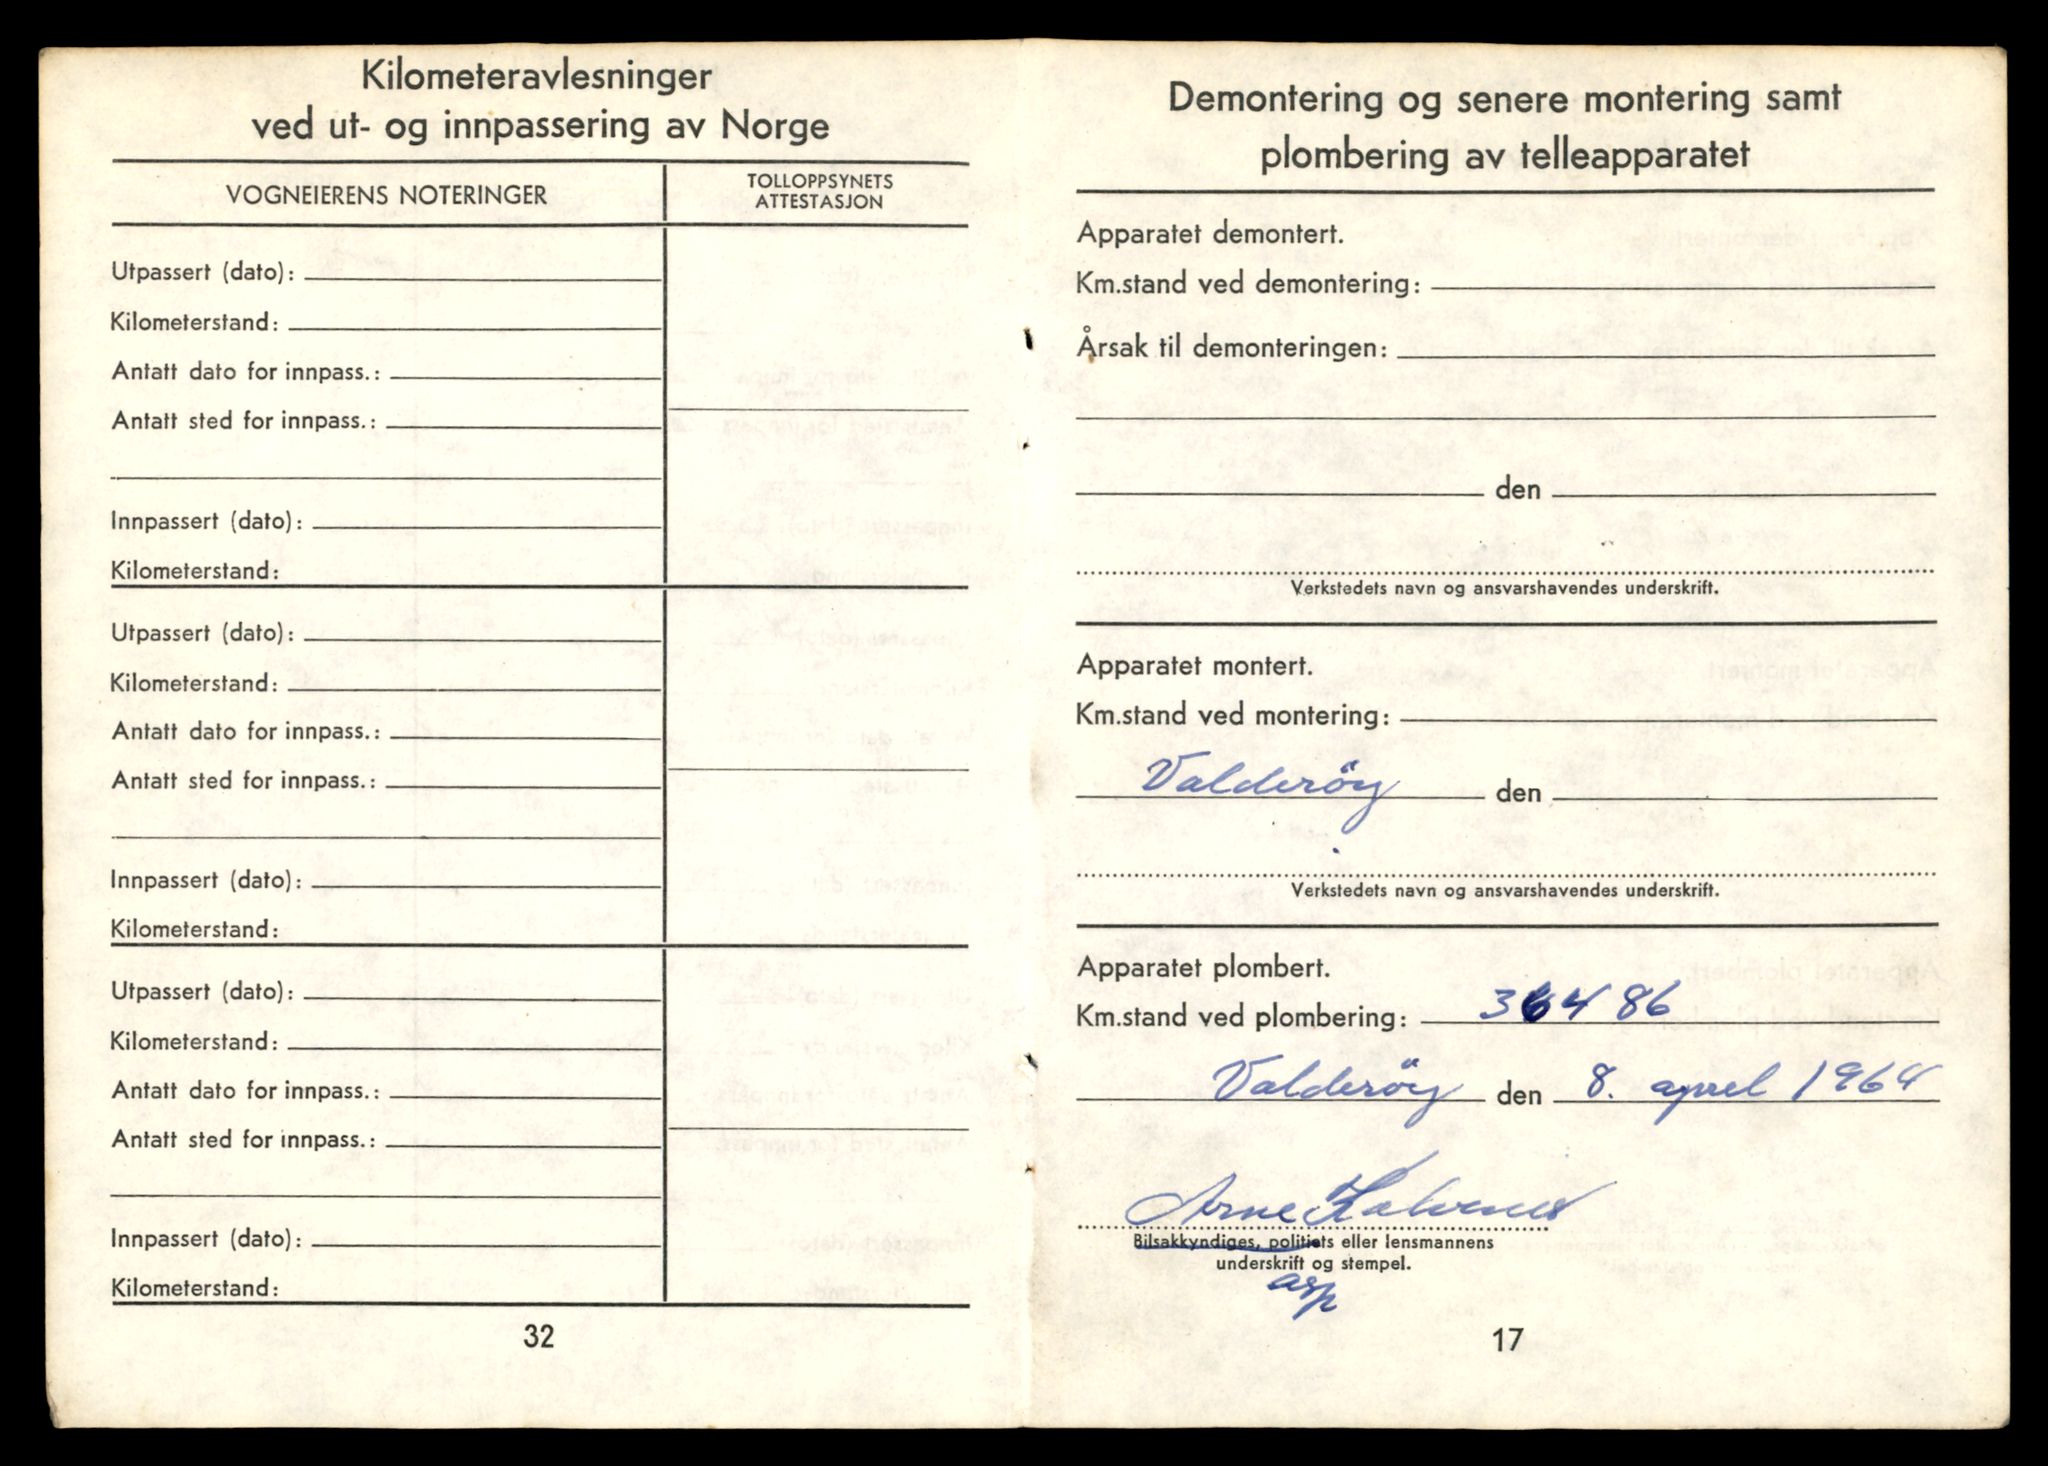 Kilometeravlesninger
ved ut- og innpassering av Norge
VOGNEIERENS NOTERINGER
TOLLOPPSYNETS
ATTESTASJON
Utpassert (dato):
Kilometerstand:
Antatt dato for innpass.:
Antatt sted for innpass.:
Innpassert (dato):
Kilometerstand:
Utpassert (dato):
Kilometerstand:
Antatt dato for innpass.:
Antatt sted for innpass.:
Innpassert (dato):
Kilometerstand:
Utpassert (dato):
Kilometerstand:
Antatt dato for innpass.:
Antatt sted for innpass.:
Innpassert (dato):
Kilometerstand:
32
Demontering og senere montering samt
plombering av telleapparatet
Apparatet demontert.
Km.stand ved demontering:
Årsak til demonteringen:
den
Verkstedets navn og ansvarshavendes underskrift.
Apparatet montert.
Km.stand ved montering:
Valderöy den
Verkstedets navn og ansvarshavendes underskrift.
Apparatet plombert.
Km.stand ved plombering: 36486
Valderöy den 8. april 1964
Arne
Bilsakkyndiges, politiets eller lensmannens
underskrift og stempel.
asp
17